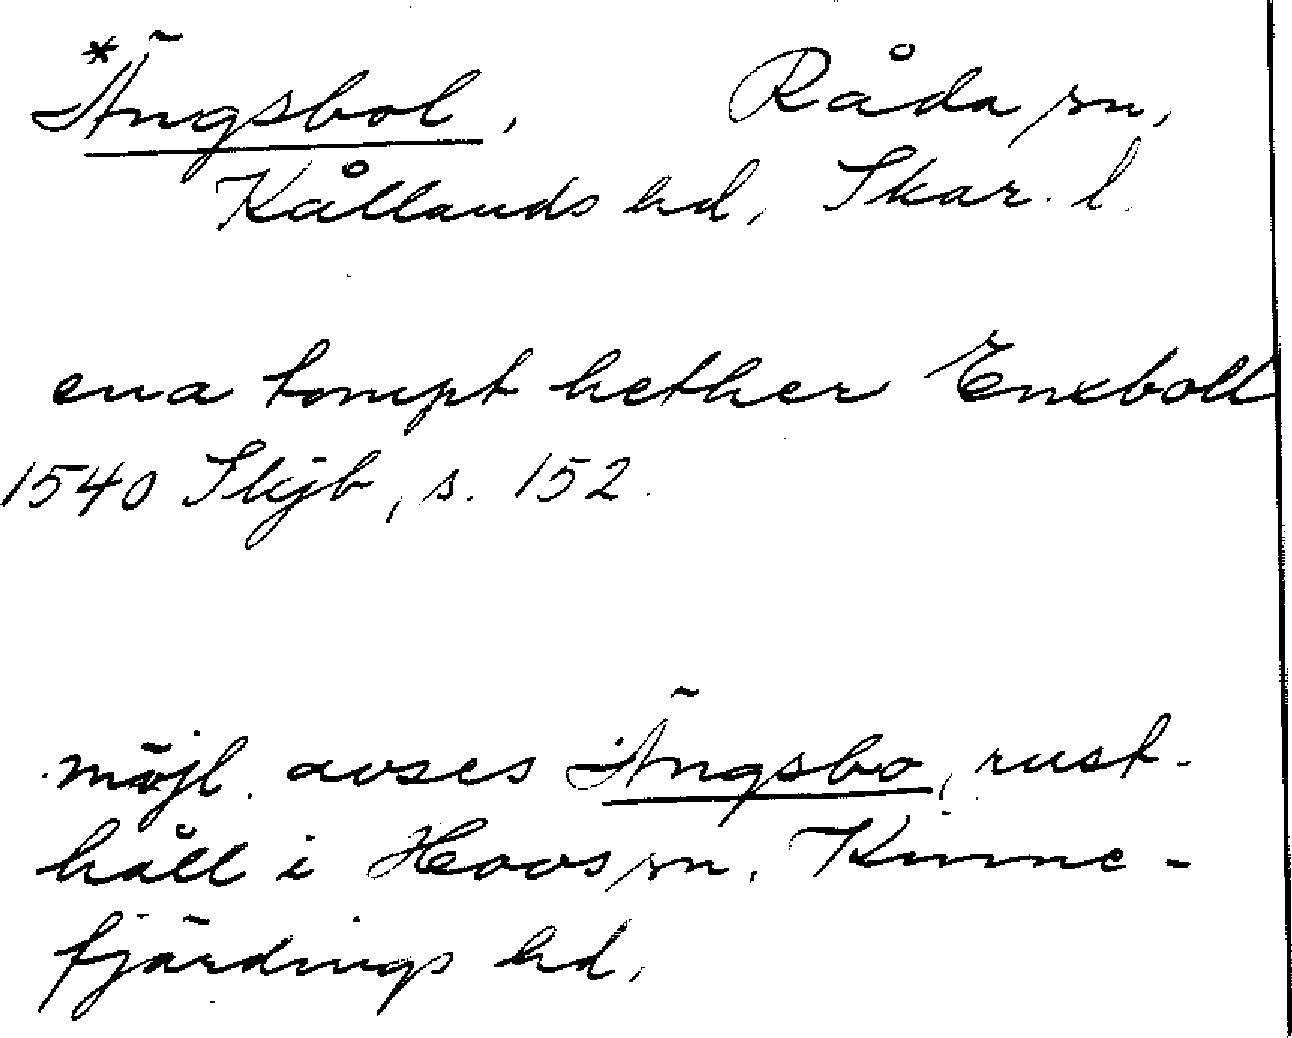 *Ängsbol, Råda sn,
Kållands hd, Skar. l.
ena tompt hether Enxboll
1540 Skjb, s. 152.
möjl. avses Ängsbo, rust-
håll i Hovs sn, Kinne-
fjärdings hd,